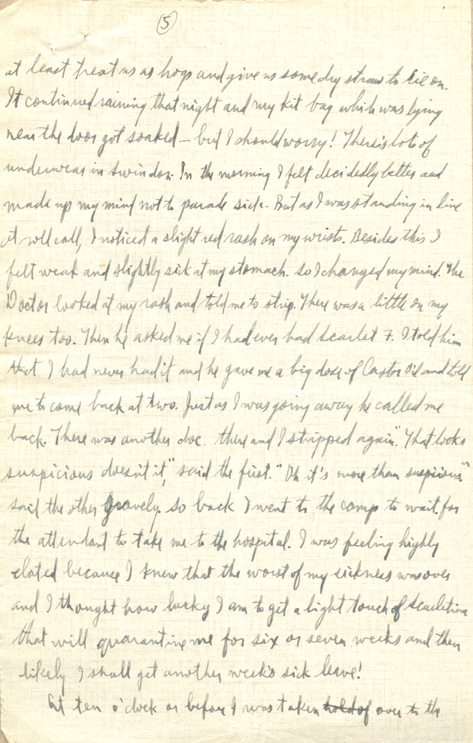 5
at least treat us as hogs and give us some dry straw to lie on.
It continued raining that night and my kit bag which was lying
near the door got soaked – but I should worry! There's lots of
underwear in Swindon. In the morning I felt decidedly better and
made up my mind not to parade sick. But as I was standing in line
at roll call, I noticed a slight red rash on my wrists. Besides this I
felt weak and slightly sick at my stomach. so I changed my mind. The
Doctor looked at my rash and told me to strip. There was a little on my
knees too. Then he asked me if I had ever had Scarlet F. I told him
that I had never had it and he gave me a big dose of Castor Oil and told
me to come back at two. Just as I was going away he called me
back. There was another doc. there and I stripped again. "That looks
suspicious doesn't it", said the first. "Oh it's more than suspicious"
said the other gravely. so back I went to the camp to wait for
the attendant to take me to the hospital. I was feeling highly
elated because I knew that the worst of my sickness was over
and I thought how lucky I am to get a light touch of Scarletina
that will quarantine me for six or seven weeks and then
likely I shall get another week's sick leave!
At ten o'clock or before I was taken hold of over to the